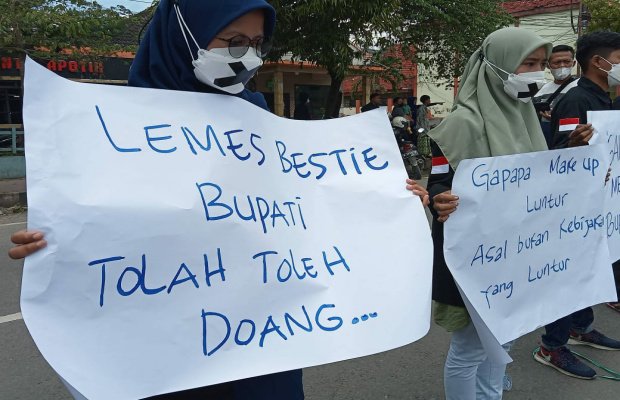 APOTIK
LEMES BESTIE
BUPATI
TOLAH TOLEH
DOANG...
Gapapa Make up
Luntur
Asal bukan Kebijaka
yang Luntur